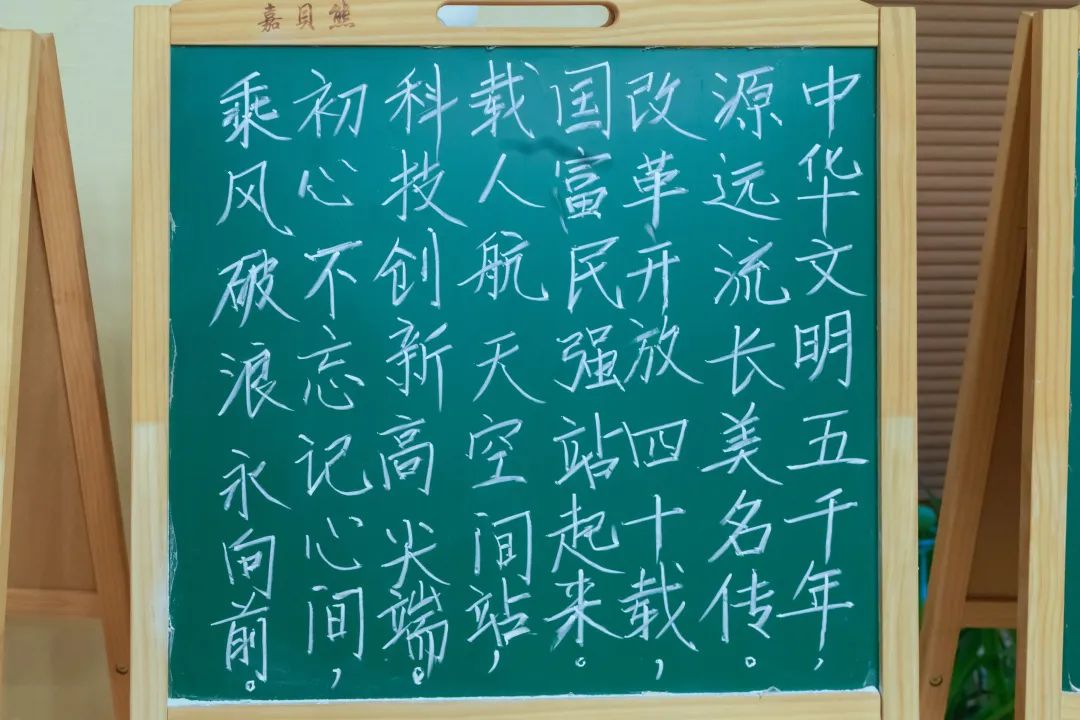 嘉贝熊
中华文明五千年,
源远流长美名传。
改革开放四十载,
国富民强站起来。
载人航天空间站,
科技创新高尖端。
初心不忘记心间,
乘风破浪永向前。